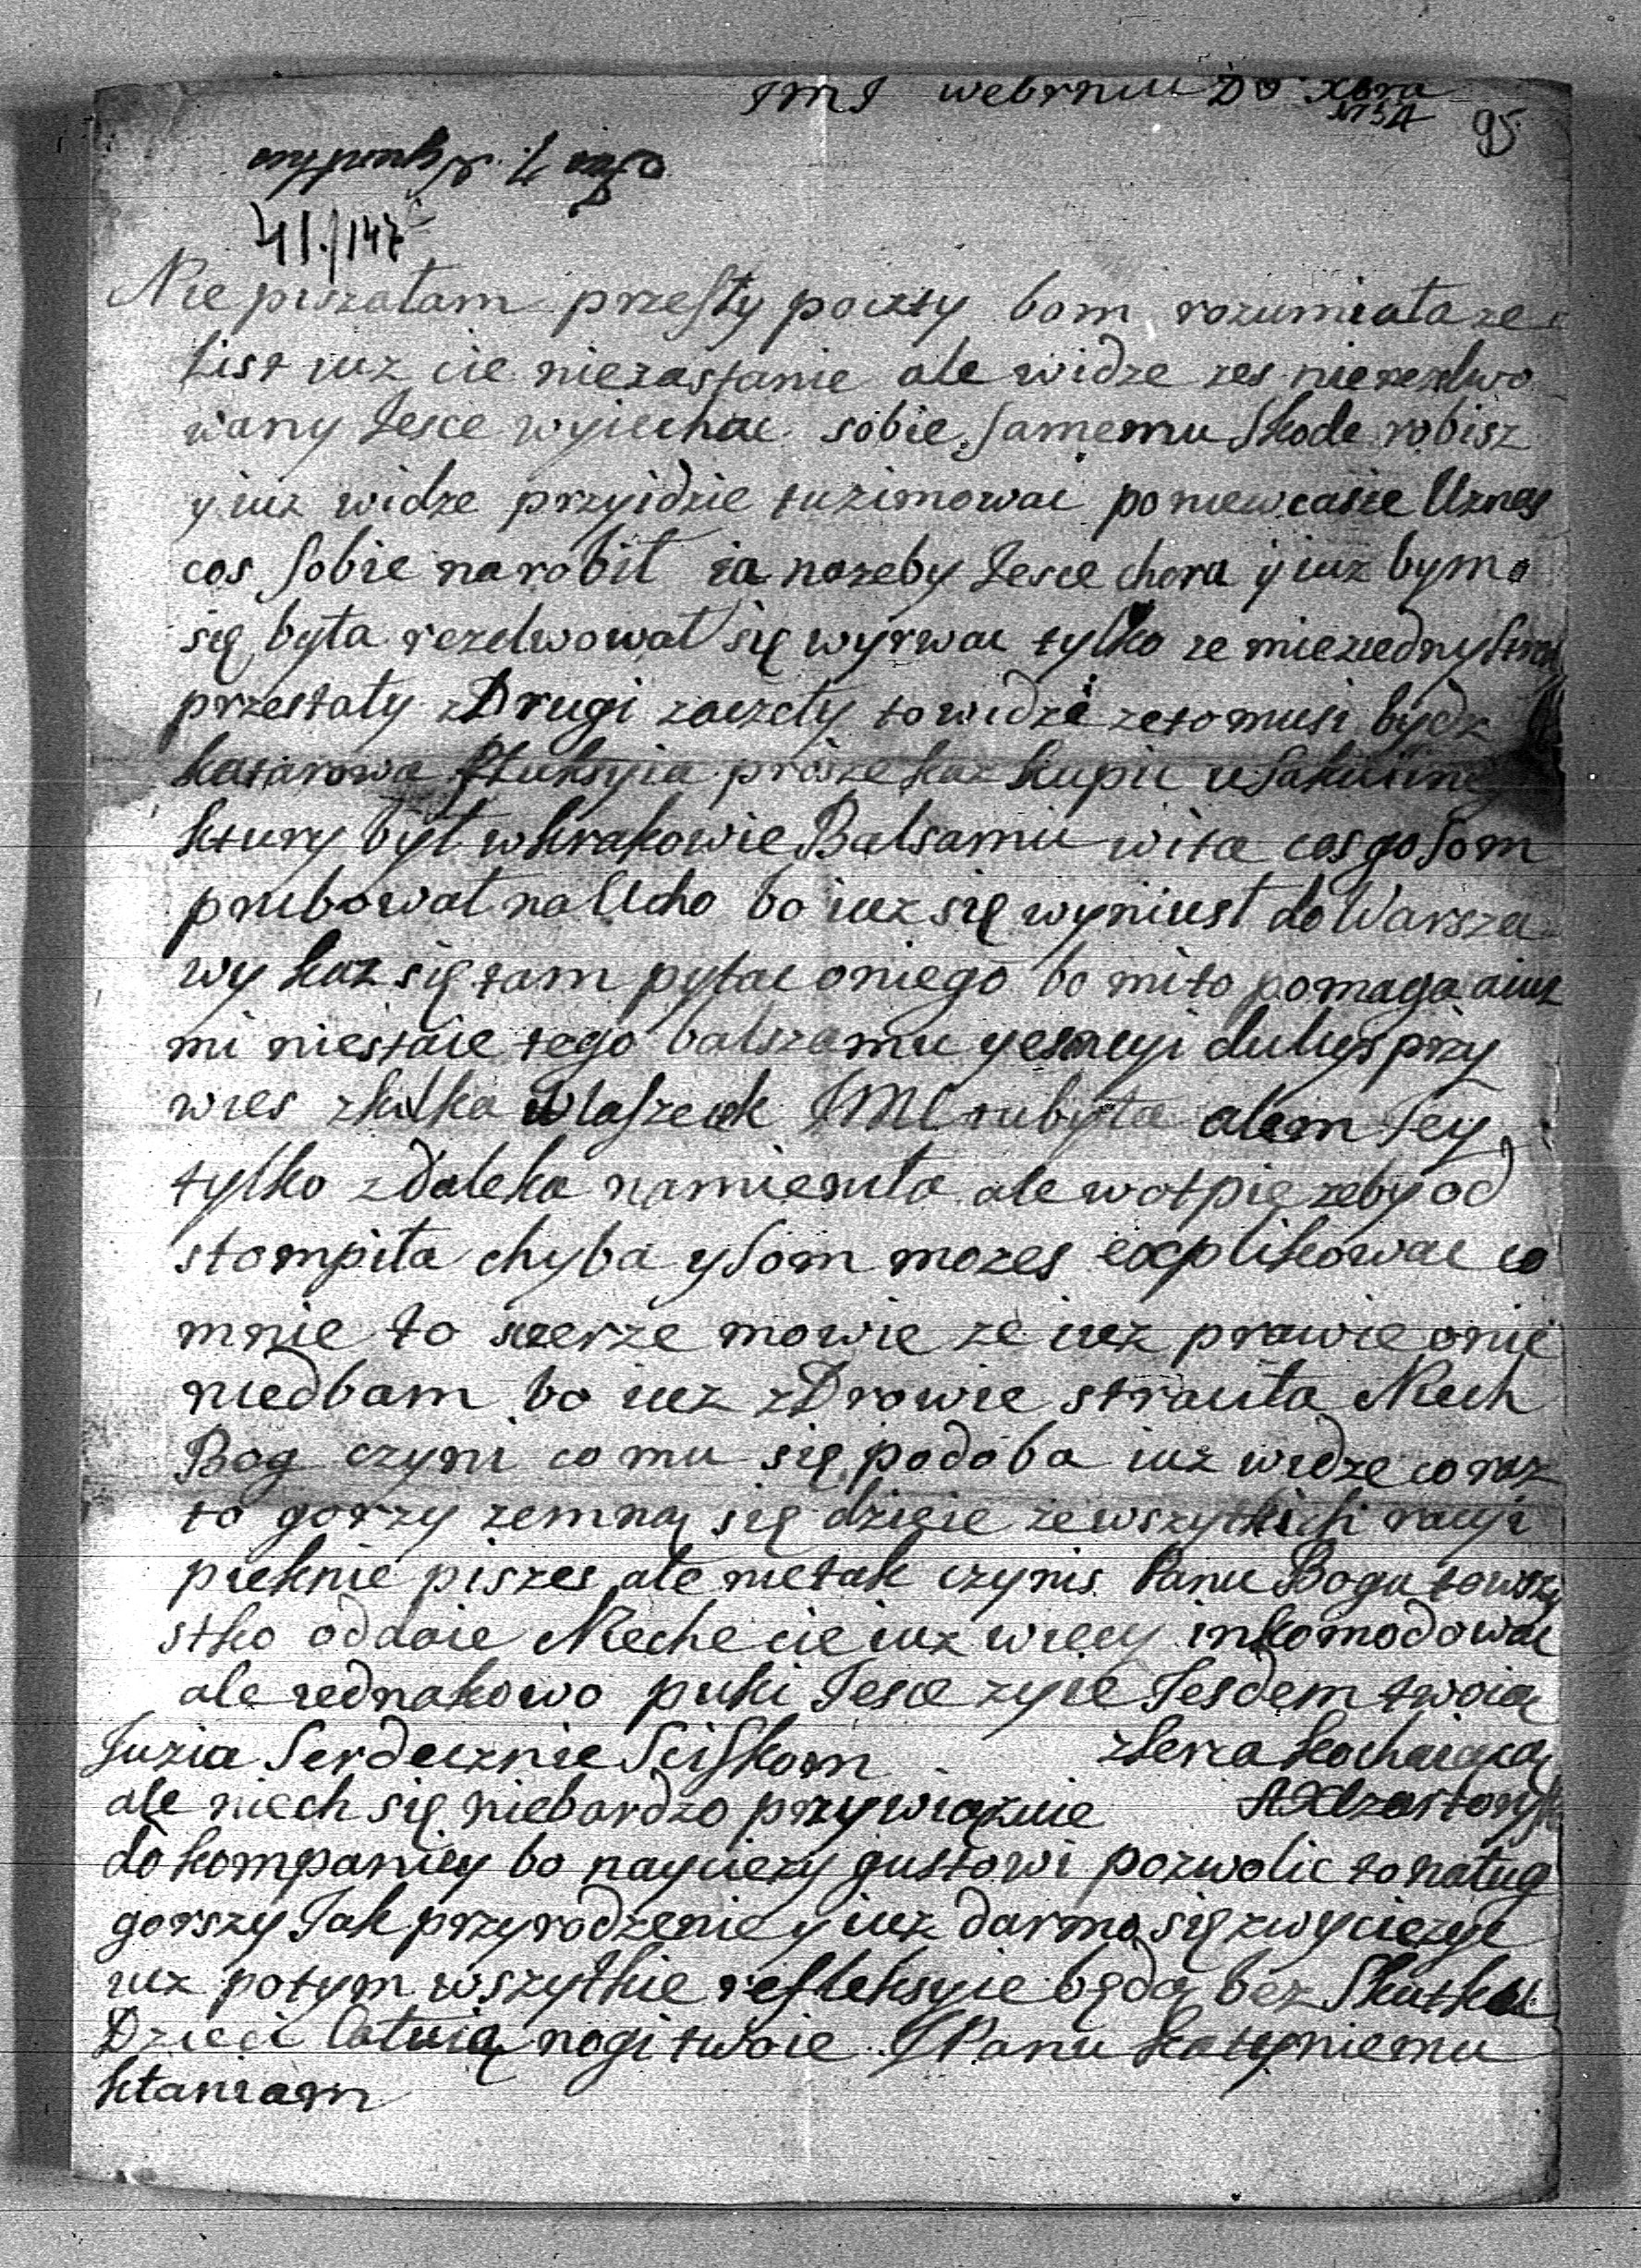 JMJ webrniu D 8 Xbra
1734 95
41./147
Nie piszałam przeszły poczty bom rozumiała ze
List iuz cie niezastanie ale widze zes nierezelwo
wany Jesce wyiechac sobie samemu Skode robisz
y iuz widze przyidzie tuzimowac poniewcasie Uznas
cos sobie narobił ia nazeby Jesce chora y iuz bym
się była rezelwował się wyrwac tylko ze miezıednystrony
przestały zDrugi zaczely to widze zeto musi bydz
katarowa fluksyia prosze kaz kupic u
ktury był wkrakowie Balsamu wita cos go som
prubował na Ucho bo iuz się wyniust do Warsza
wy kaz się tam pytac oniego bo mi to pomaga aiuz
mi niestaie tego balszamu yesencyi dulcys przy
wies zkilka flaszecek JMC tubyła alem Jey
tylko zdaleka namienila ale wotpię zeby od
stompiła chyba ysom mozes explikowac co
mnie to scerze mowie ze iuz prawie onie
niedbam bo iuz zDrowie straciła Niech
Bog czyni co mu się podoba iuz widze coraz
to gorzy zemną się dzieie zewszytkich racyi
pieknie piszes ale nietak czynis Panu Bogu towszy
stko oddaie Nieche cie iuz wiecy inkomodowac
ale iednakowo puki Jesce zyie Jesdem twoią
Juzia Serdecznie Sciskom zserca kochaiącą
ale niech się niebardzo przywiązuie AXCzartorys
do kompaniey bo naycieży gustowi pozwolic to naług
gorszy Jak przyrodzenie y iuz darmo się zwyciezyc
iuz potym wszytkie refleksyie będą bez Skutku
Dzieci całuią nogi twoie JPanu
kłaniam